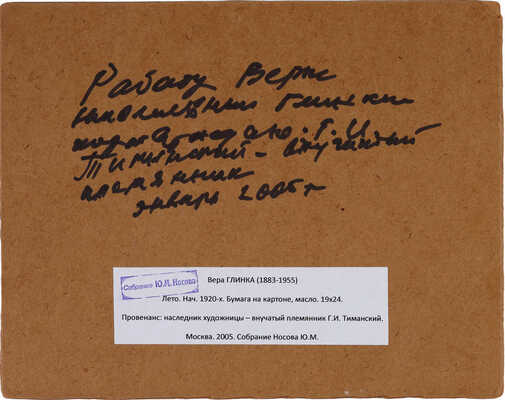 Работу Веры
Николаевны Глинки
подтверждаю. Г. И
Тиманский – внучатый
племянник
январь 2005 г
Собрание Ю.М. Носова
Вера ГЛИНКА (1883-1955)
Лето. Нач. 1920-х. Бумага на картоне, масло. 19х24.
Провенанс: наследник художницы – внучатый племянник Г.И. Тиманский.
Москва. 2005. Собрание Носова Ю.М.